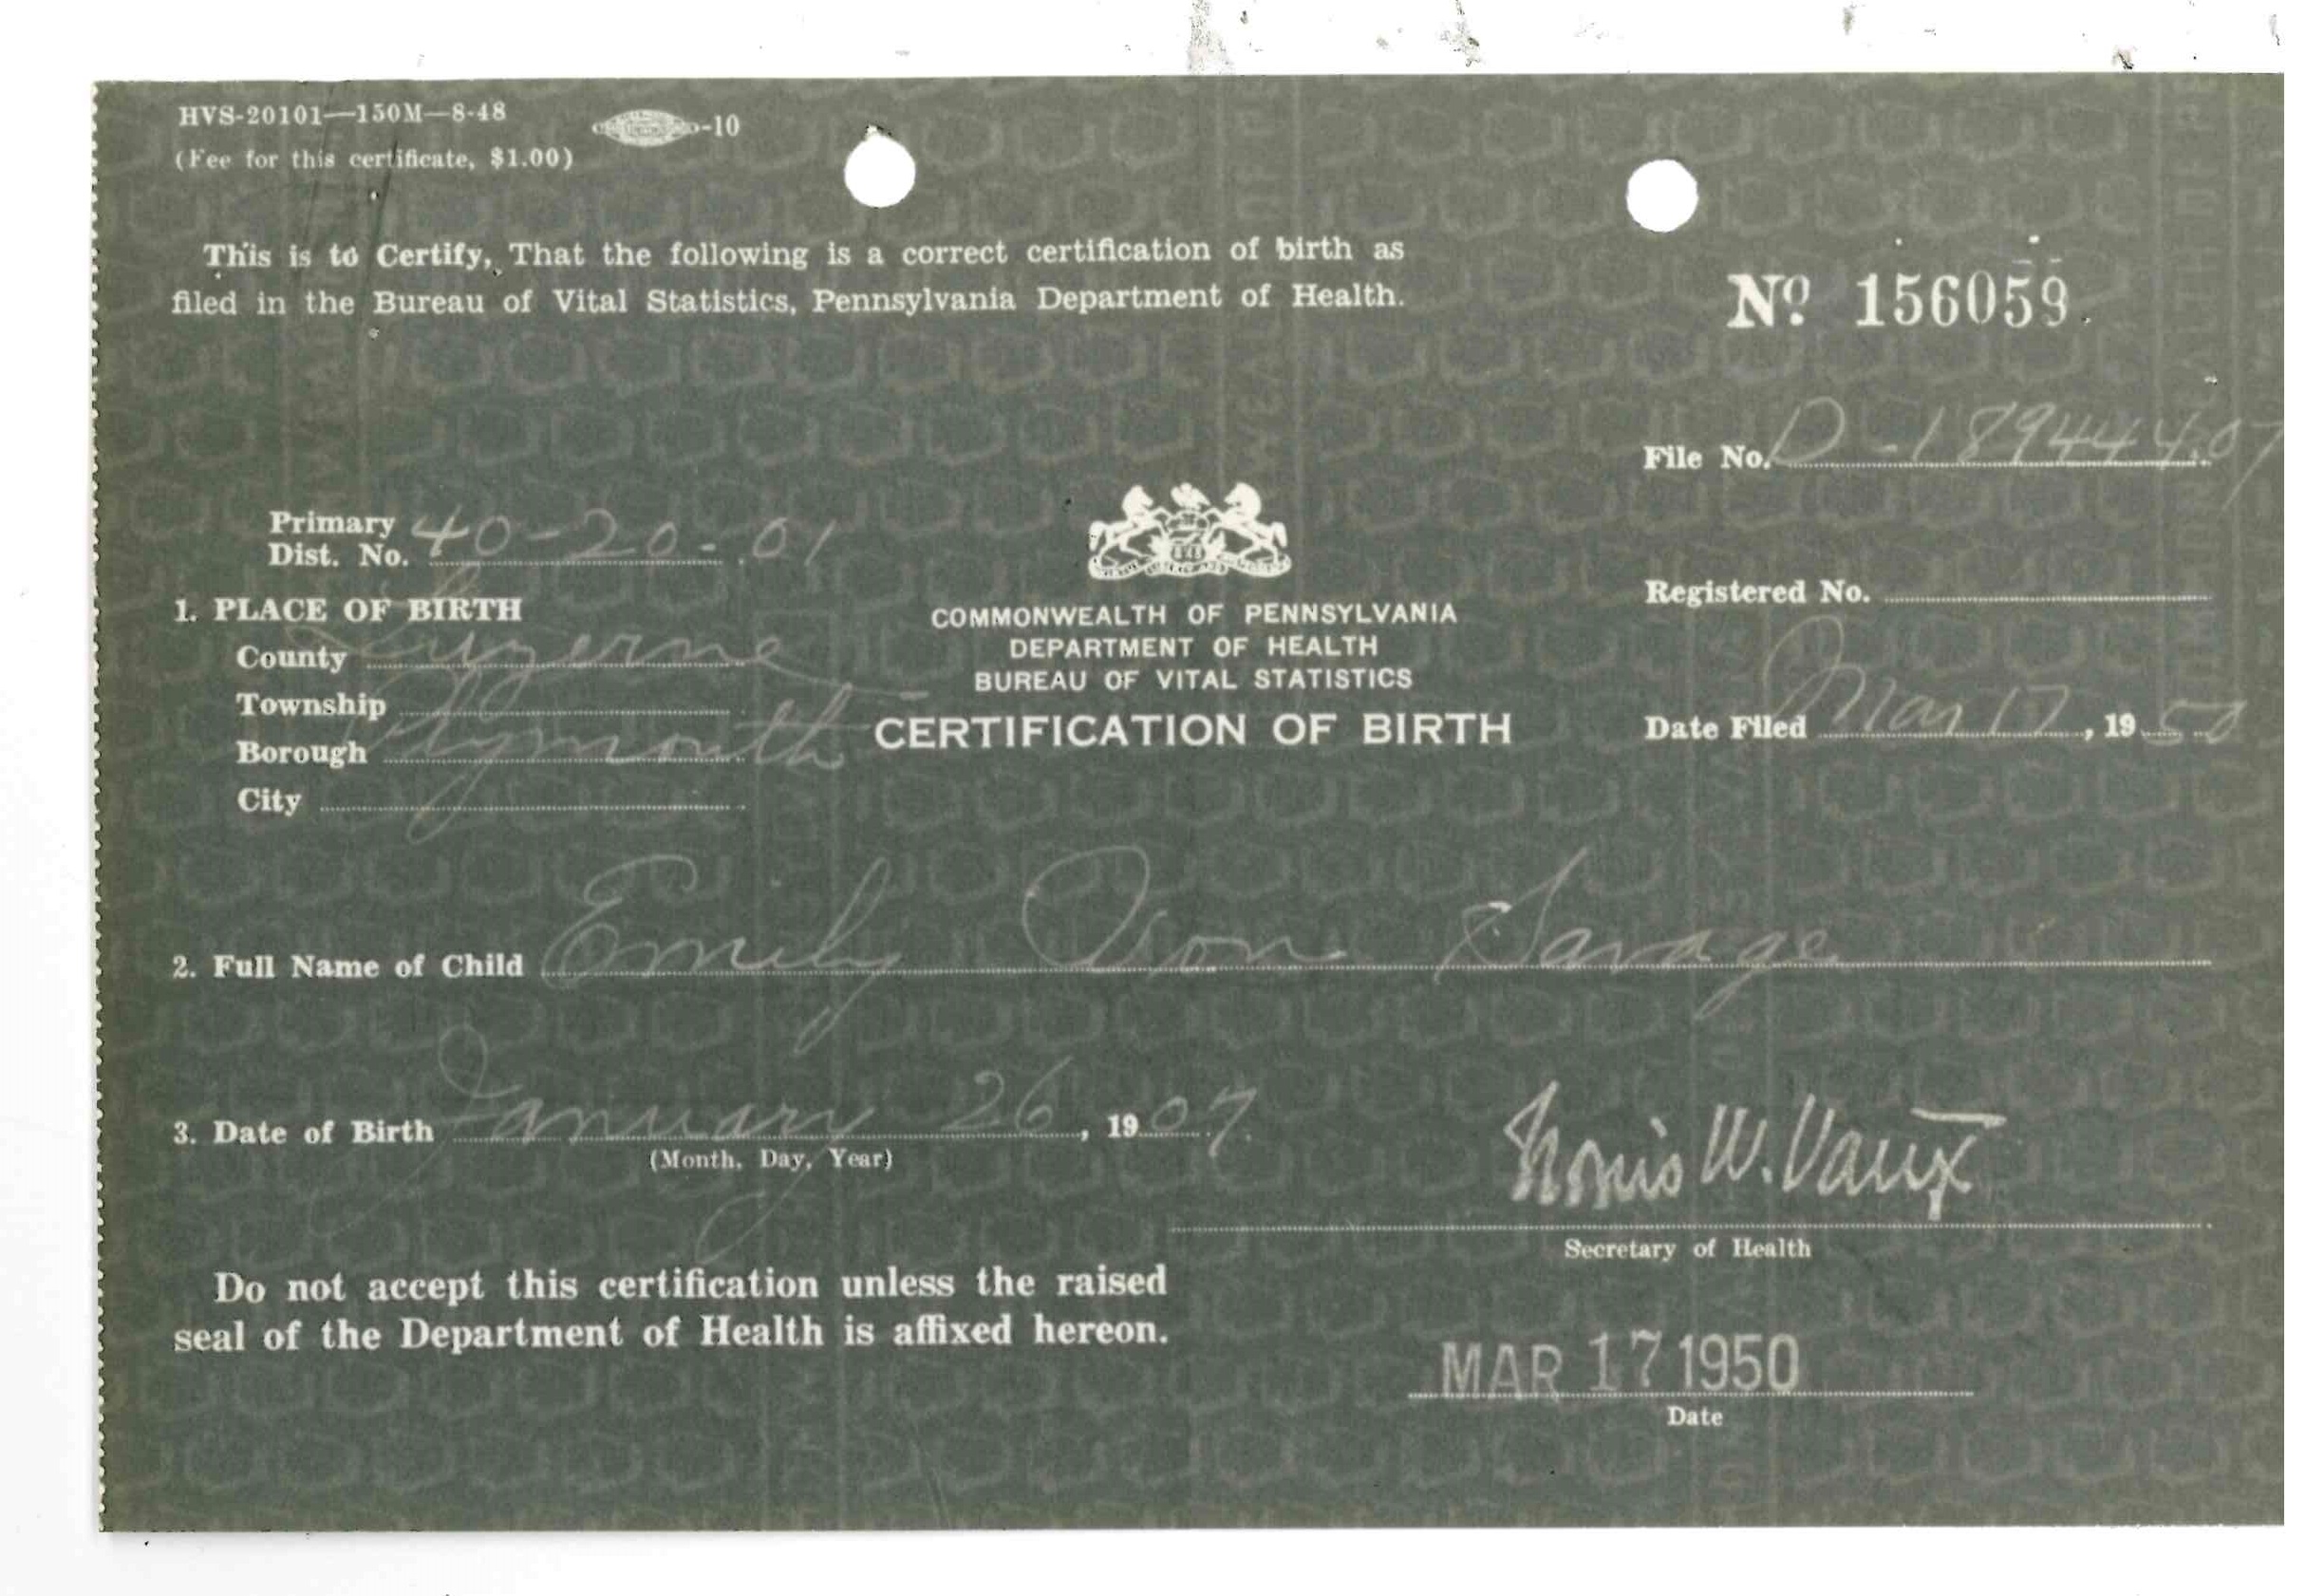 HVS-20101—150M—8-48
-10
(Fee for this certificate, $1.00)
This is to Certify, That the following is a correct certification of birth as
filed in the Bureau of Vital Statistics, Pennsylvania Department of Health.
Nº 156059
File No. D-189444.07
Primary
Dist. No. 40-20-01
Registered No.
1. PLACE OF BIRTH
County Luzerne
Township
Borough Plymouth
City
COMMONWEALTH OF PENNSYLVANIA
DEPARTMENT OF HEALTH
BUREAU OF VITAL STATISTICS
CERTIFICATION OF BIRTH
Date Filed Mar 17, 1950
2. Full Name of Child Emily Savage
3. Date of Birth January 26, 1907
(Month, Day, Year)
Norris W. Vaux
Secretary of Health
Do not accept this certification unless the raised
seal of the Department of Health is affixed hereon.
MAR 17 1950
Date